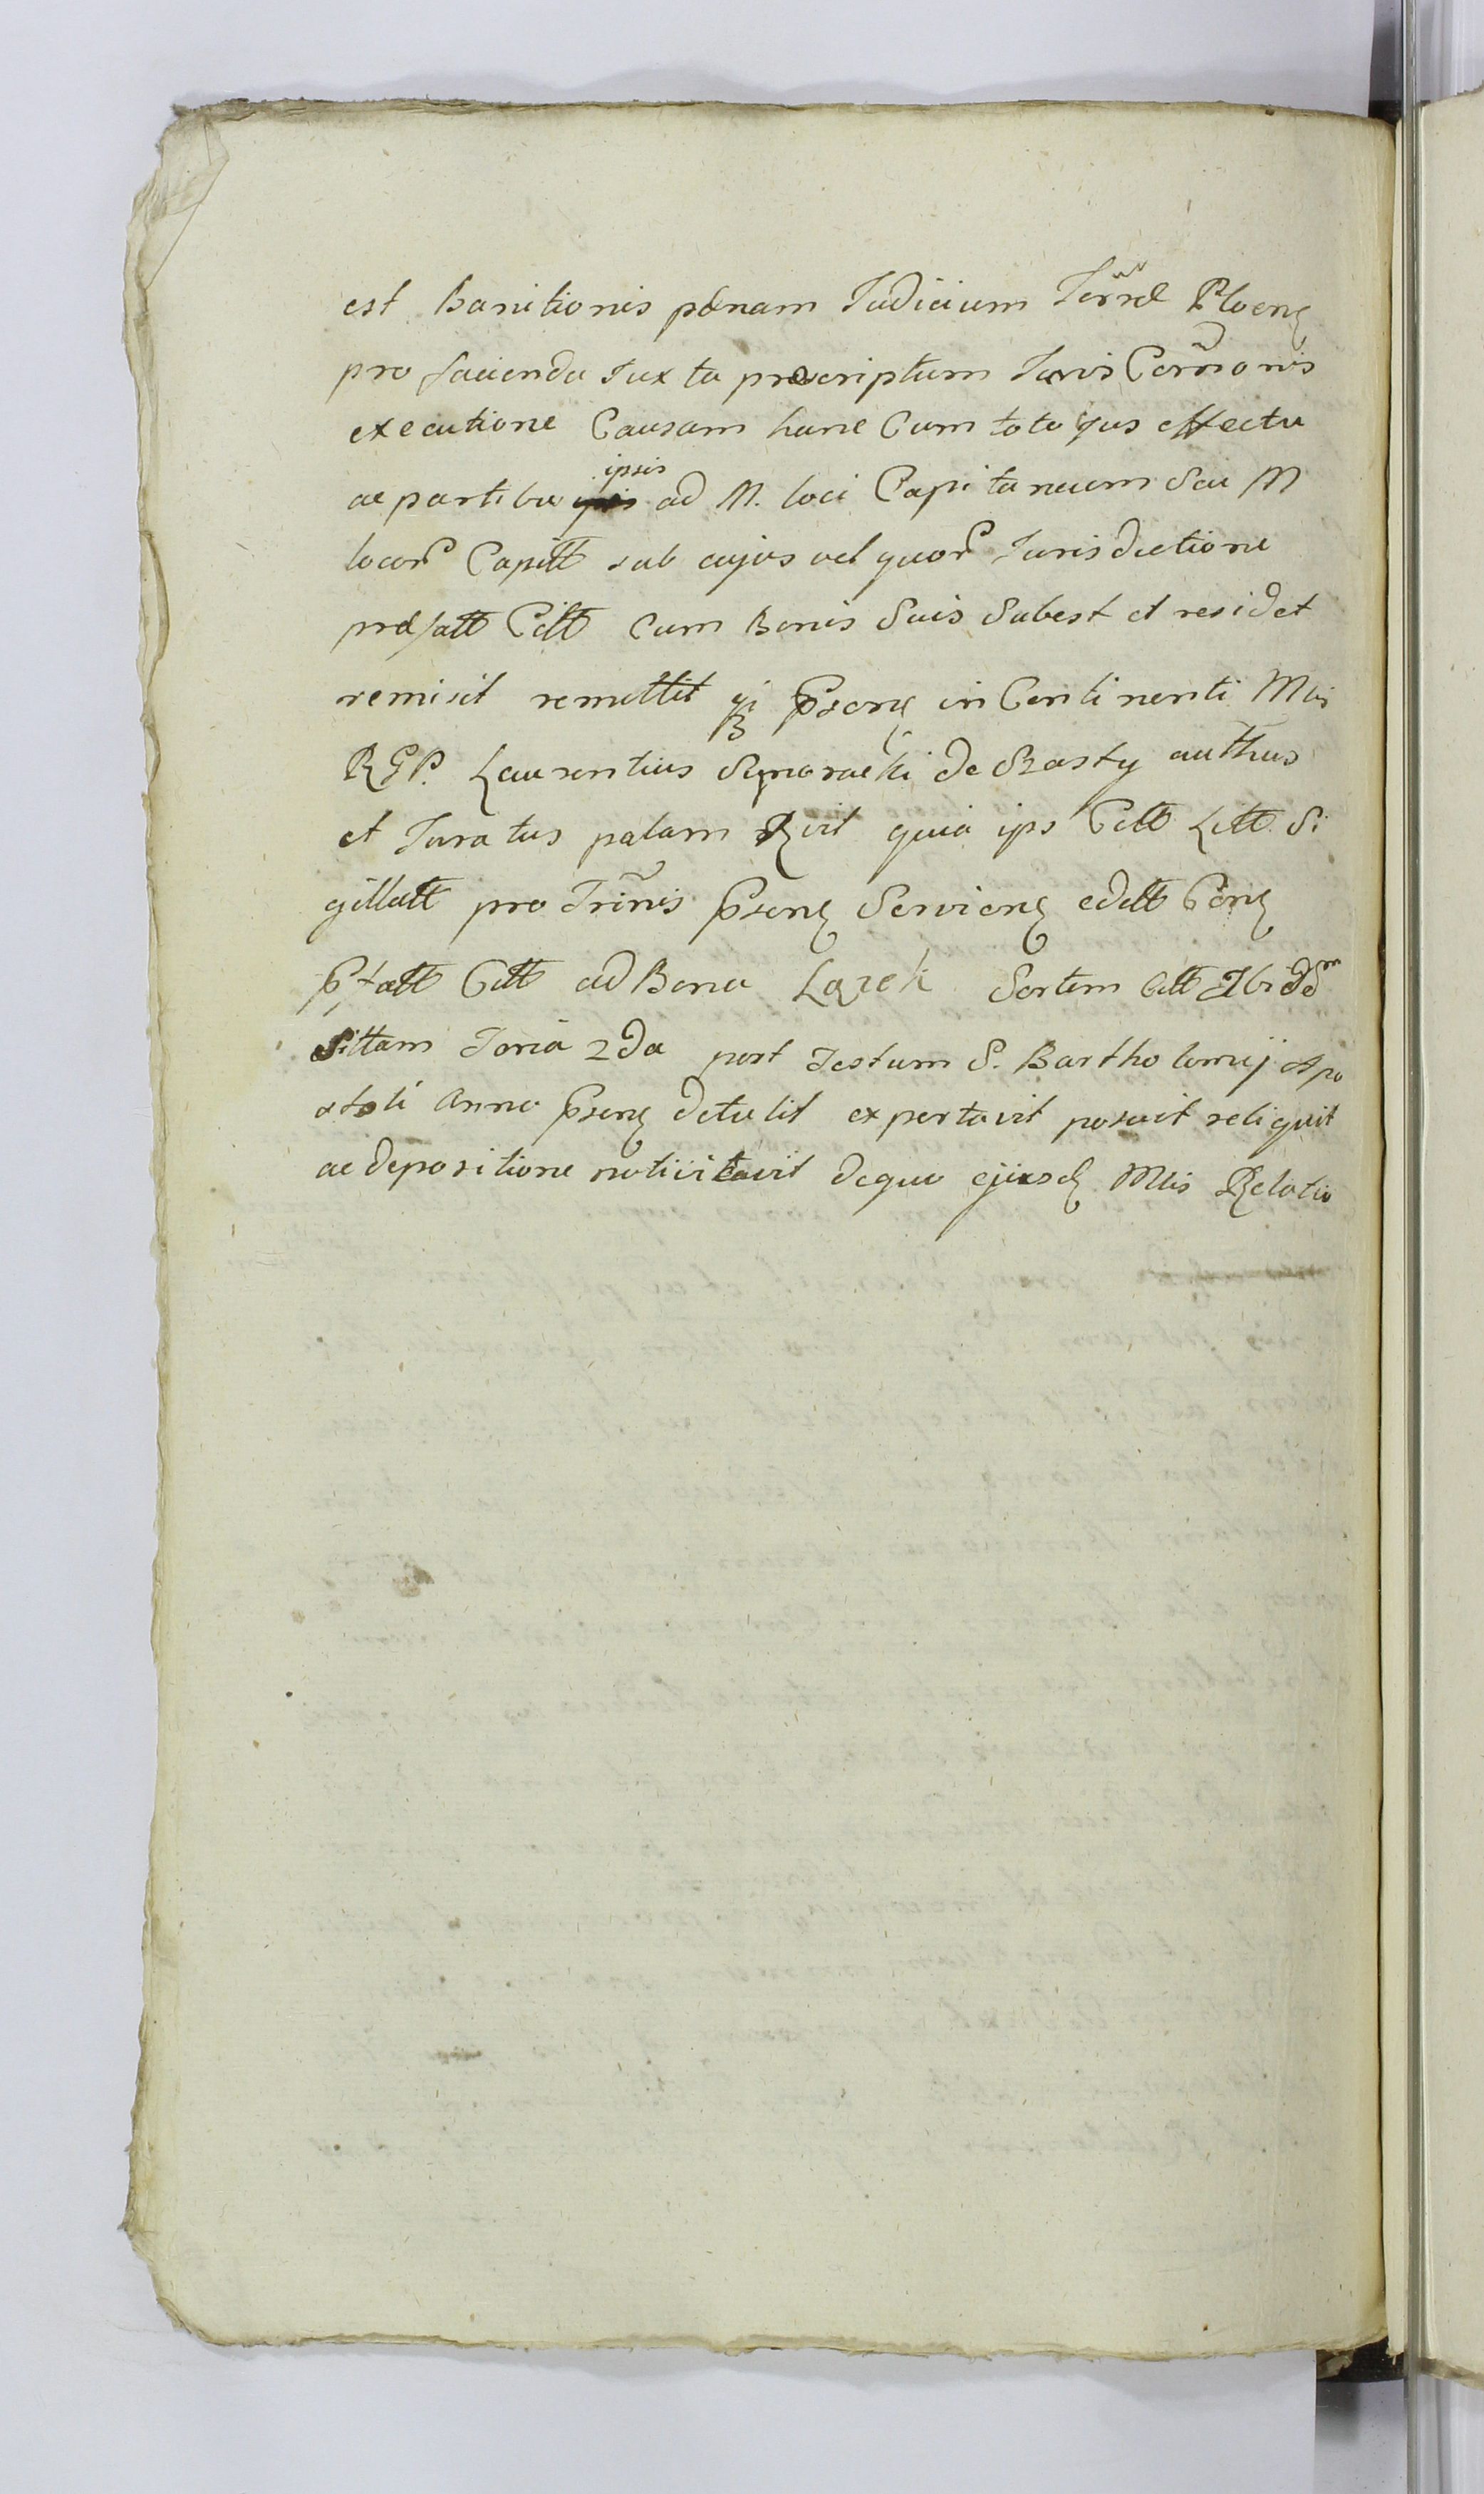 est Banitionis pænam Judicium Terræ Ploen
pro facienda Juxta præscriptum Juris Com̃onis
executione Causam hanc Cum toto ejus effectu
ac partibus ipsis ad M. loci Capitaneum Seu M
locor Capitt sub cujus vel quor Jurisdictione
præfatt Citt Cum Bonis Suis Subest et residet
remisit remittit in Continenti Mtis
RGP. Laurentius de Szasty autthus
et Juratus palam Rvit quia ips Citt Litt Si
gillatt pro Trinis Psen Servien editt Con
Pfatt Citt ad Bona Łązek Sortem Citt Ibidem
Sittam Feria 2da post Festum S. Bartholomej Apo
stoli Anno Psen detulit exportavit posuit reliquit
ac depositione notiiitavit dequo ejusd Mtis Relatio